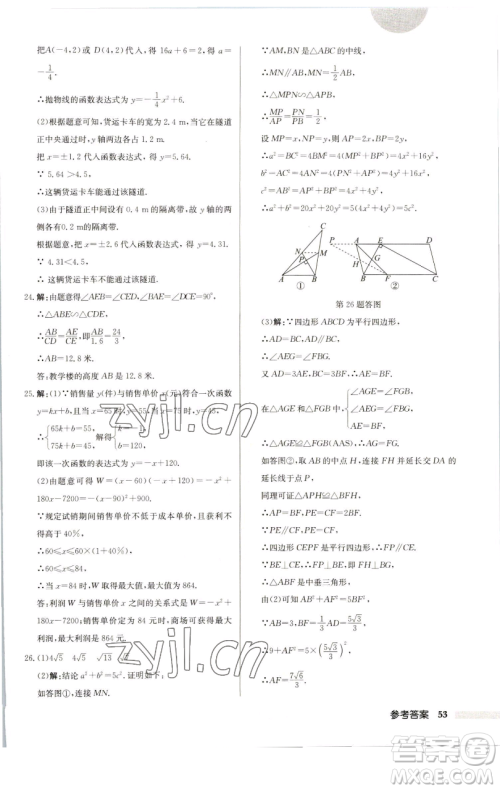 把A(-4,2)或D(4,2)代入,得 16a+6=2.得 a=
-1/4.
∴抛物线的函数表达式为 y=-1/4x²+6.
(2)根据题意可知,货运卡车的宽为 2.4 m,当它在隧道
正中央通过时,y轴两边各占 1.2 m.
把 x=±1.2 代入函数表达式,得 y=5.64.
∵5.64>4.5,
∴这辆货运卡车能通过该隧道.
(3)由于隧道正中间设有 0.4 m 的隔离带,故 y 轴的两
侧各有 0.2 m 的隔离带.
把 x=±2.6 代入函数表达式,得 y=4.31.
∵4.31<4.5,
∴这辆货运卡车不能通过该隧道.
24.解:由题意得∠AEB=∠CED,∠ABE=∠CDE=90°,
∴△ABE∽△CDE.
∴AB/CD=AE/CE,即AB/1.6=24/3.
∴AB=12.8 m.
答:教学楼的高度 AB 是 12.8 m.
25.解:(1)∵销售量 y(件)与销售单价 x(元)符合一次函数
y=kx+b,且当 x=65 时,y=55,当 x=75 时,y=45,
∴{65k+b=55, 75k+b=45, 解得{k=-1, b=120,
即该一次函数的表达式为 y=-x+120.
(2)由题意可得 W=(x-60)(-x+120)=-x²+
180x-7200=-(x-90)²+900.
∵规定试销期间销售单价不低于成本单价,且获利不
得高于 40%,
∴60≤x≤60×(1+40%).
∴60≤x≤84.
∴当 x=84 时,W 取得最大值,最大值为 864.
答:利润 W 与销售单价 x 之间的关系式是 W=-x²+
180x-7200,销售单价定为 84 元时,商场可获得最大
利润,最大利润是 864 元.
26.(1)4√5 4√5 √13
(2)解:结论 a²+b²=5c².证明如下:
如答图①,连接 MN.
∵AM,BN 是△ABC 的中线,
∴MN∥AB,MN=1/2AB.
∴△MPN∽△APB.
∴MP/AP=PN/PB=1/2.
设 MP=x,NP=y,则 AP=2x,BP=2y.
∴a²=BC²=4BM²=4(MP²+BP²)=4x²+16y²,
b²=AC²=4AN²=4(PN²+AP²)=4y²+16x²,
c²=AB²=AP²+BP²=4x²+4y².
∴a²+b²=20x²+20y²=5(4x²+4y²)=5c².
C N M P A B ①
A E D P H G B F C ②
第 26 题答图
(3)解:∵四边形 ABCD 为平行四边形,
∴AD=BC,AD∥BC.
∴∠AEG=∠FBG.
在△AGE 和△FGB 中,{∠AGE=∠FGB, ∠AEG=∠FBG, AE=FB,
∴△AGE≌△FGB(AAS),∴AG=FG.
如答图②,取 AB 的中点 H,连接 FH 并延长,交 DA 的
延长线于点 P,
同理可证△APH≌△BFH.
∴AP=BF,
∵PE∥CF,
∴四边形 CEPF 是平行四边形.∴FP∥CE.
∵BE⊥CE,∴FP⊥BE,即 FH⊥BG.
∴△ABF 是中垂三角形.
由(2)可知 AB²+AF²=5BF².